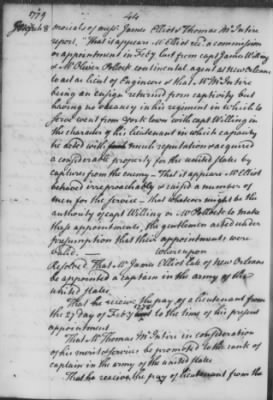 1779 44
morials of messrs James Elliot & Thomas McIntire
report, "That it appears Mr Elliot recd a commission
or appointment in Feby last from capt James Willing
& Mr Oliver Pollock continental agent at New Orleans
to act as lieut of Engineers & that Mr McIntire
being an ensign returned from captivity but
having no vacancy in his regiment in which to
serve went from York town with capt Willing in
the character of his lieutenant in which capacity
he acted with much reputation & acquired
a considerable property for the united states by
captures from the enemy — That it appears Mr Elliot
behaved irreproachably & raised a number of
men for the service — That whatever might be the
authority of capt Willing or Mr Pollock to make
these appointments, the gentlemen acted under
presumption that their appointments were
valid. — Whereupon
Resolved That Mr James Elliot late of New Orleans
be appointed a captain in the army of the
united states.
That he receive the pay of a lieutenant from
the 27 day of Feby 1778 to the time of his present
appointment
That Mr Thomas McIntire in consideration
of his merit & services be promoted to the rank of
captain in the army of the united states
That he receive the pay of lieutenant from the